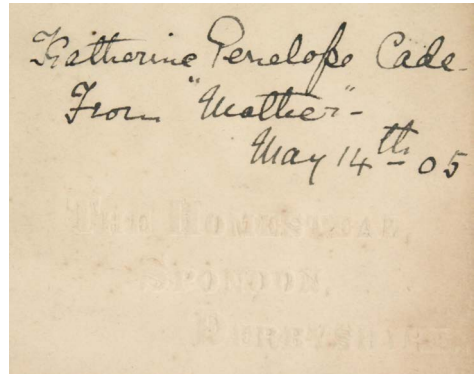 Katherine Penelope Cade
From "Mother" -
May 14th 05
The Homestead,
Spondon,
Derbyshire.